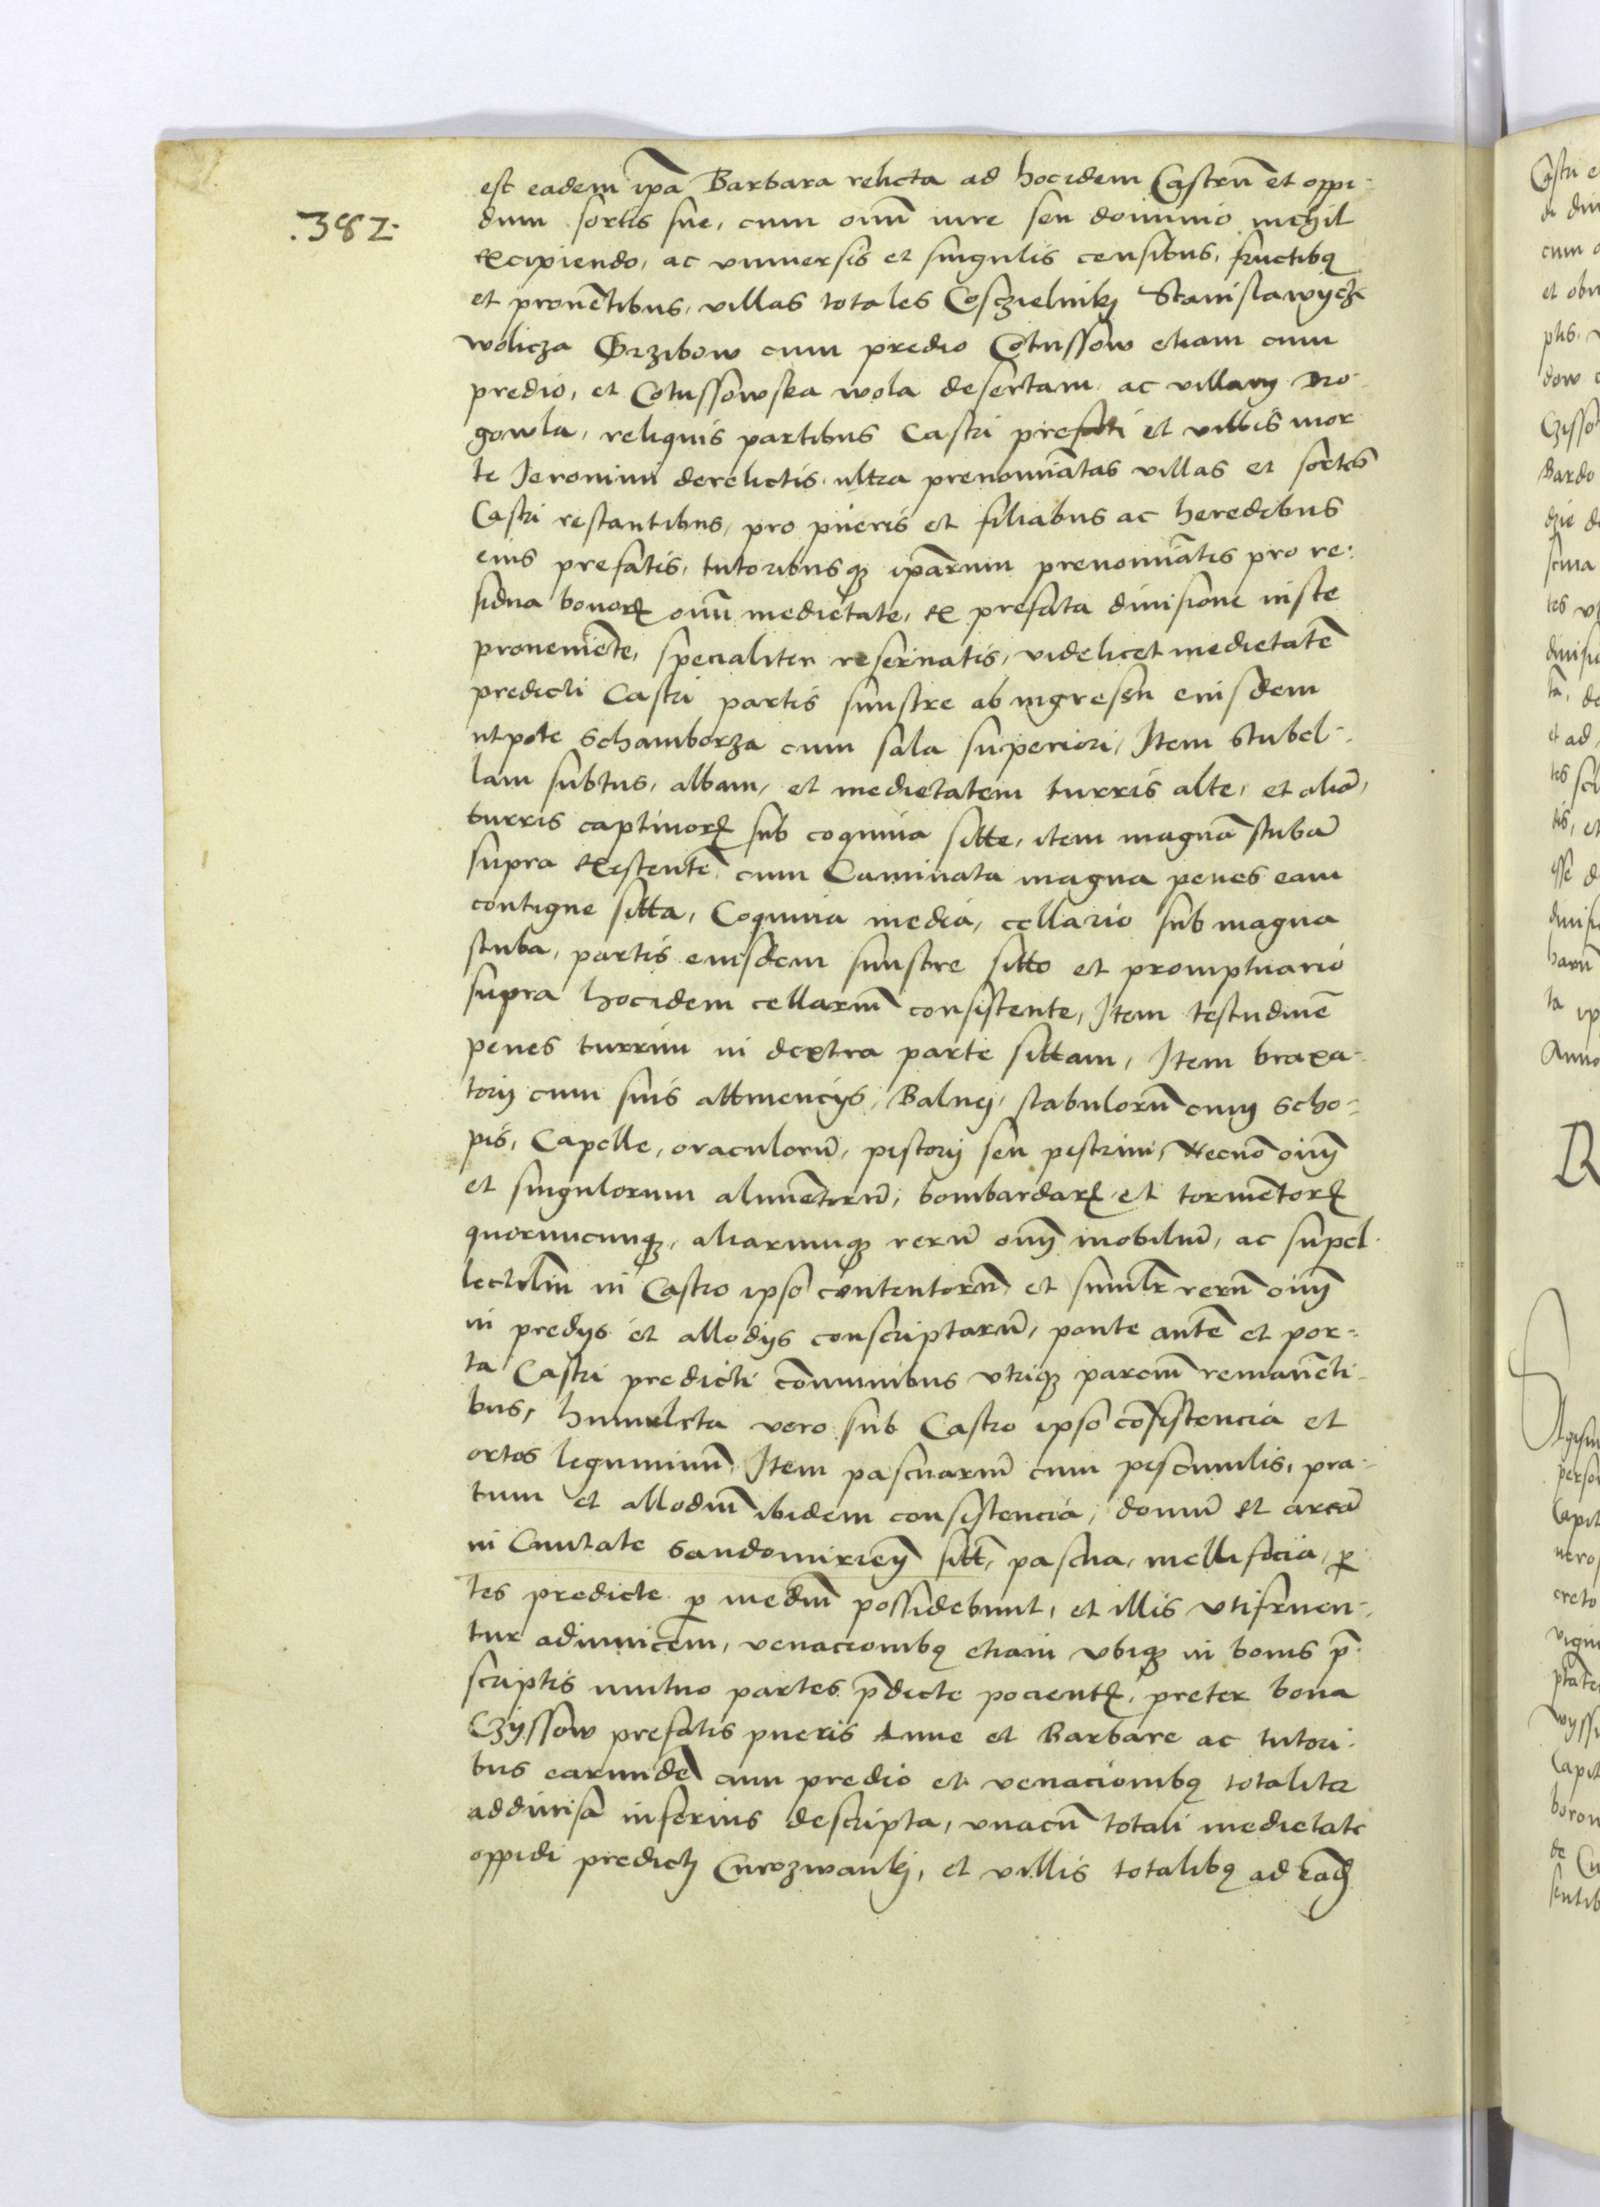 .382.
est eadem ip̄a Barbara relicta ad hocidem Castrū et oppi-
dum sortis sue, cum om̄i iure seu dominio nichil
excipiendo, ac vniuersis et singulis censibus, fructibq
et prouētibus, villas totales Cosczielnikj Stanislawyczk
wolicza Grzibow cum predio Cotussow etiam cum
predio, et Cotussowska wola desertam ac villam No-
gowla, reliquis partibus Castri prefati et villis mor
te Jeronimi derelictis ultra prenoīatas villas et sortes
Castri restantibus, pro pueris et filiabus ac heredibus
eius prefatis, tutoribusqꝫ ip̄arum prenomīatis pro re-
sidua bonoꝝ om̄i medietate, ex prefata diuisione iuste
proueniēte, specialiter reseruatis, videlicet medietatē
predicti Castri partis sinistre ab ingressu eiusdem
utpote schamborza cum sala superiori, Item stubel-
lam subtus, albam, et medietatem turris alte, et aliā,
turris captiuoꝝ sub coquina sitte, item magnā stubā
supra existentē cum Caminata magna penes eam
contigue sitta, Coquina media, cellario sub magna
stuba, partis eiusdem sinistre sitto et promptuario
supra hocidem cellariū consistente, Item testudinē
penes turrim in dextra parte sittam, Item braxa-
torij cum suis attinencijs, Balnej, stabulorū cum scho-
pis, Capelle, oraculorū, pistorij seu pistrini, Necnō om̄
et singulorum alimētorū, bombardaꝝ et tormētoꝝ
quorumcunqꝫ, aliarumqꝫ rerū om̄ mobiliū, ac supel-
lectiliū in Castro ipso contentorū et similr̄ rerū om̄
in predijs et allodijs conscriptarū, ponte autē et por-
ta Castri predicti cōmunibus vtriqꝫ parciū remanēti-
bus, humulcta vero sub Castro ipso cōsistencia et
ortos leguminū Item pascuariū cum piscinulis, pra-
tum et allodiū ibidem consistencia, domū et areā
in Ciuitate Sandomirieñ sitt̄, pascua, mellificia, ꝑ
tes predicte ꝑ mediū possidebunt, et illis vtifruen-
tur adinuicem, venacionibq etiam vbiqꝫ in bonis p̄
scriptis mutuo partes p̄dicte pocientꝝ, preter bona
Czyssow prefatis pueris Anne et Barbare ac tutori-
bus earundē cum predio et venacionibq totaliter
addiuisa inferius descripta, vnacū totali medietate
oppidi predictj Curozwankj, et villis totalibq ad eād